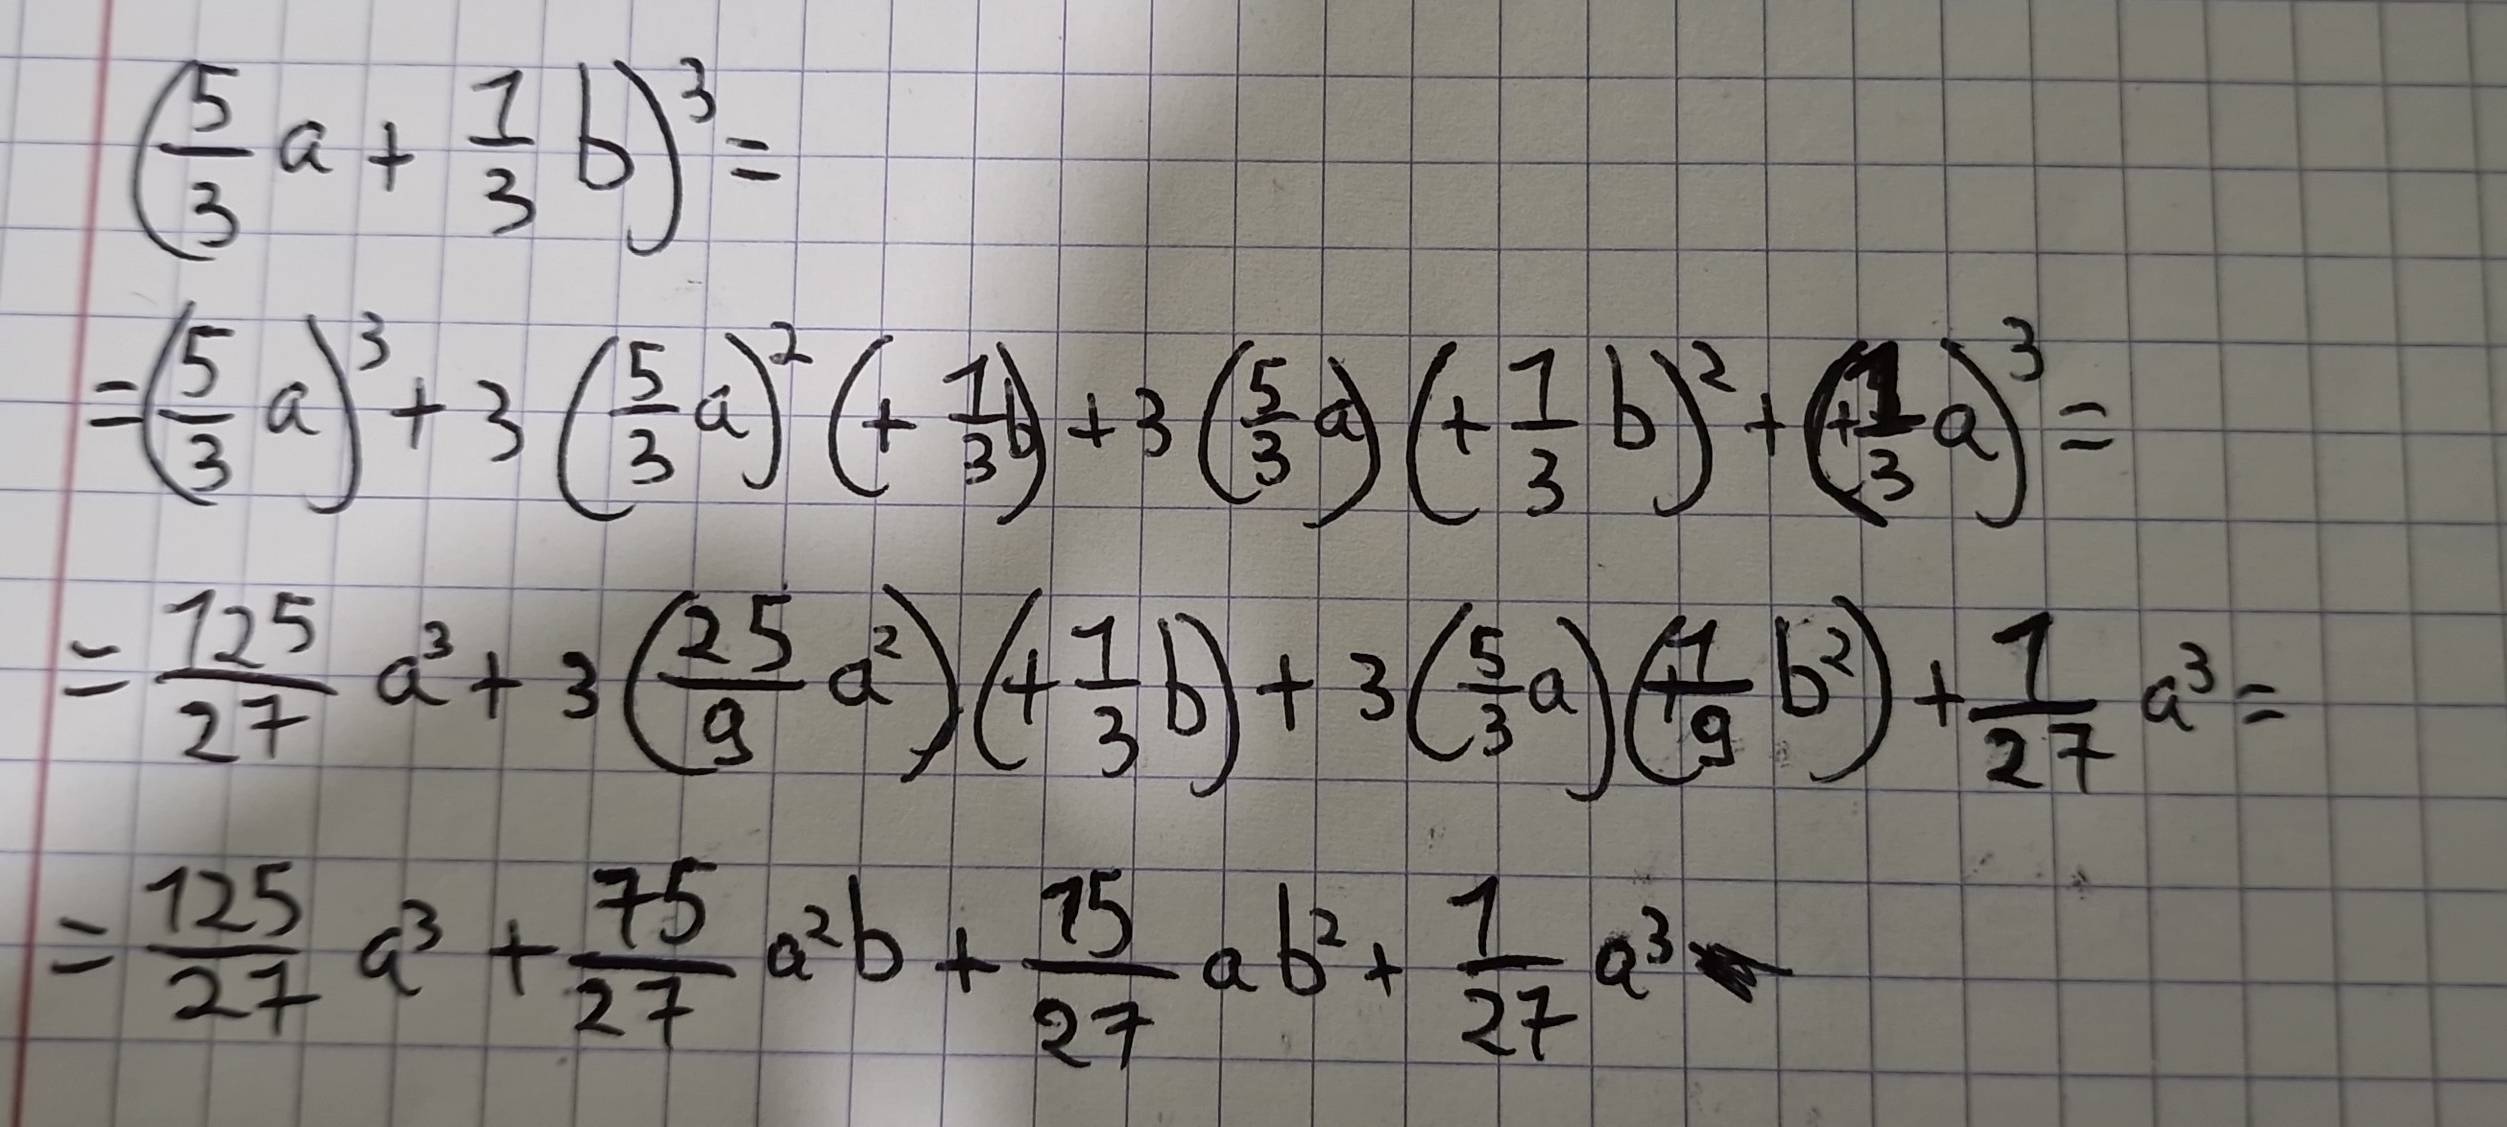 (5/3 a + 1/3 b)³ =
= (5/3 a)³ + 3 (5/3 a)² (+ 1/3 b) + 3 (5/3 a) (+ 1/3 b)² + (+ 1/3 a)³ =
= 125/27 a³ + 3 (25/9 a²) (+ 1/3 b) + 3 (5/3 a) (+ 1/9 b²) + 1/27 a³ =
= 125/27 a³ + 75/27 a²b + 15/27 ab² + 1/27 a³